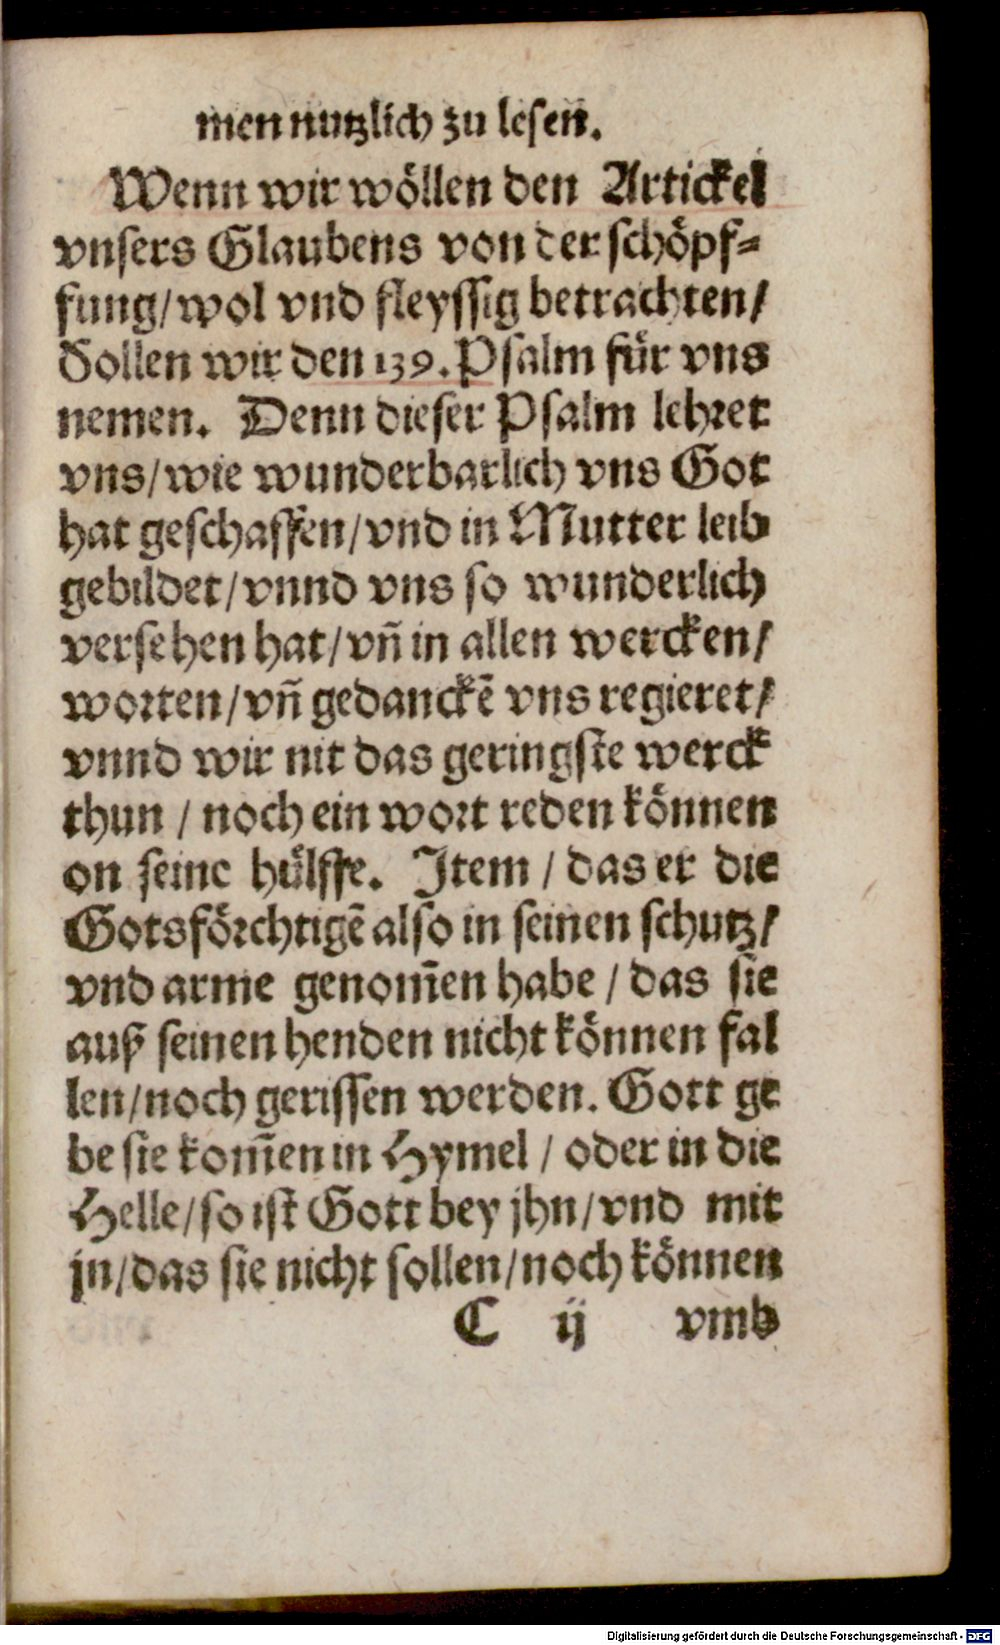 men nutzlich zu lesen.
Wenn wir wöllen den Artickel
vnsers Glaubens von der schöpf=
fung/wol vnd fleyssig betrachten/
Sollen wir den 139. Psalm für vns
nemen. Denn dieser Psalm lehret
vns/wie wunderbarlich vns Got
hat geschaffen/vnd in Mutter leib
gebildet/vnnd vns so wunderlich
versehen hat/vñ in allen wercken/
worten/vñ gedanckē vns regieret/
vnnd wir nit das geringste werck
thun / noch ein wort reden können
on seine hülffe. Item / das er die
Gotsförchtigē also in seinen schutz/
vnd arme genom̄en habe / das sie
auß seinen henden nicht können fal
len/noch gerissen werden. Gott ge
be sie kom̄en in Hymel / oder in die
Helle/so ist Gott bey jhn/vnd mit
jn/das sie nicht sollen/noch können
C ij vmb
Digitalisierung gefördert durch die Deutsche Forschungsgemeinschaft - DFG